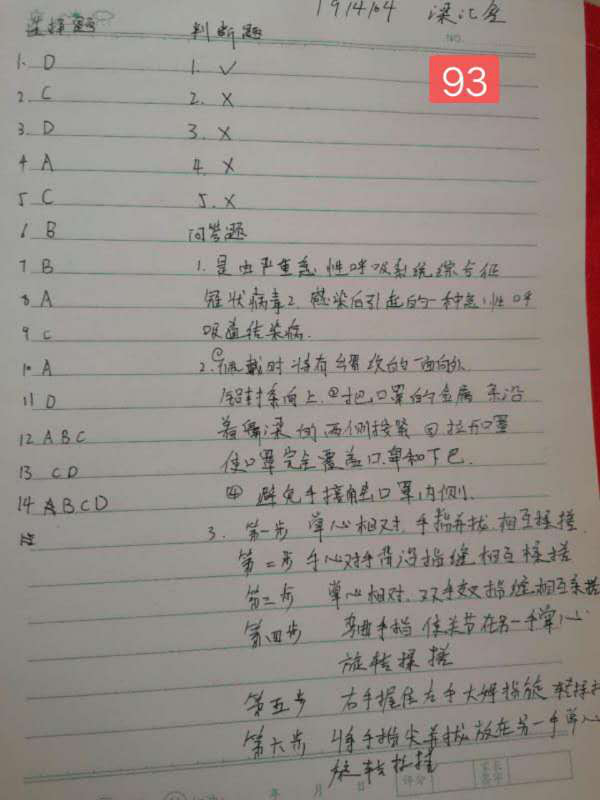 19/4/04 梁汇鑫
选择题 判断题
NO.
93
1. D 1. ✓
2. C 2. X
3. D 3. X
4 A 4. X
5 C 5. X
6 B 问答题
7 B 1. 是由严重急性呼吸系统综合征
8 A 冠状病毒2感染后引起的一种急性呼
9 C 吸道传染病.
10 A 2.①佩戴时将有褶皱的一面向外
11 D 铝封条向上.②把口罩的金属条沿
12 A B C 着鼻梁的两侧按紧 ③ 拉开口罩
13 C D 使口罩完全覆盖口.鼻和下巴.
14 A B.C D ④ 避免手接触口罩内侧.
15 3. 第一步 掌心相对.手指并拢.相互揉搓.
第二步 手心对手背沿指缝相互揉搓
第三步 掌心相对.双手交叉指缝相互揉搓
第四步 弯曲手指使关节在另一手掌心
旋转揉搓
第五步 右手握住左手大姆指旋转揉搓
第六步 将手指尖并拢放在另一手掌心
旋转揉搓
评分 家长签字
年 月 日